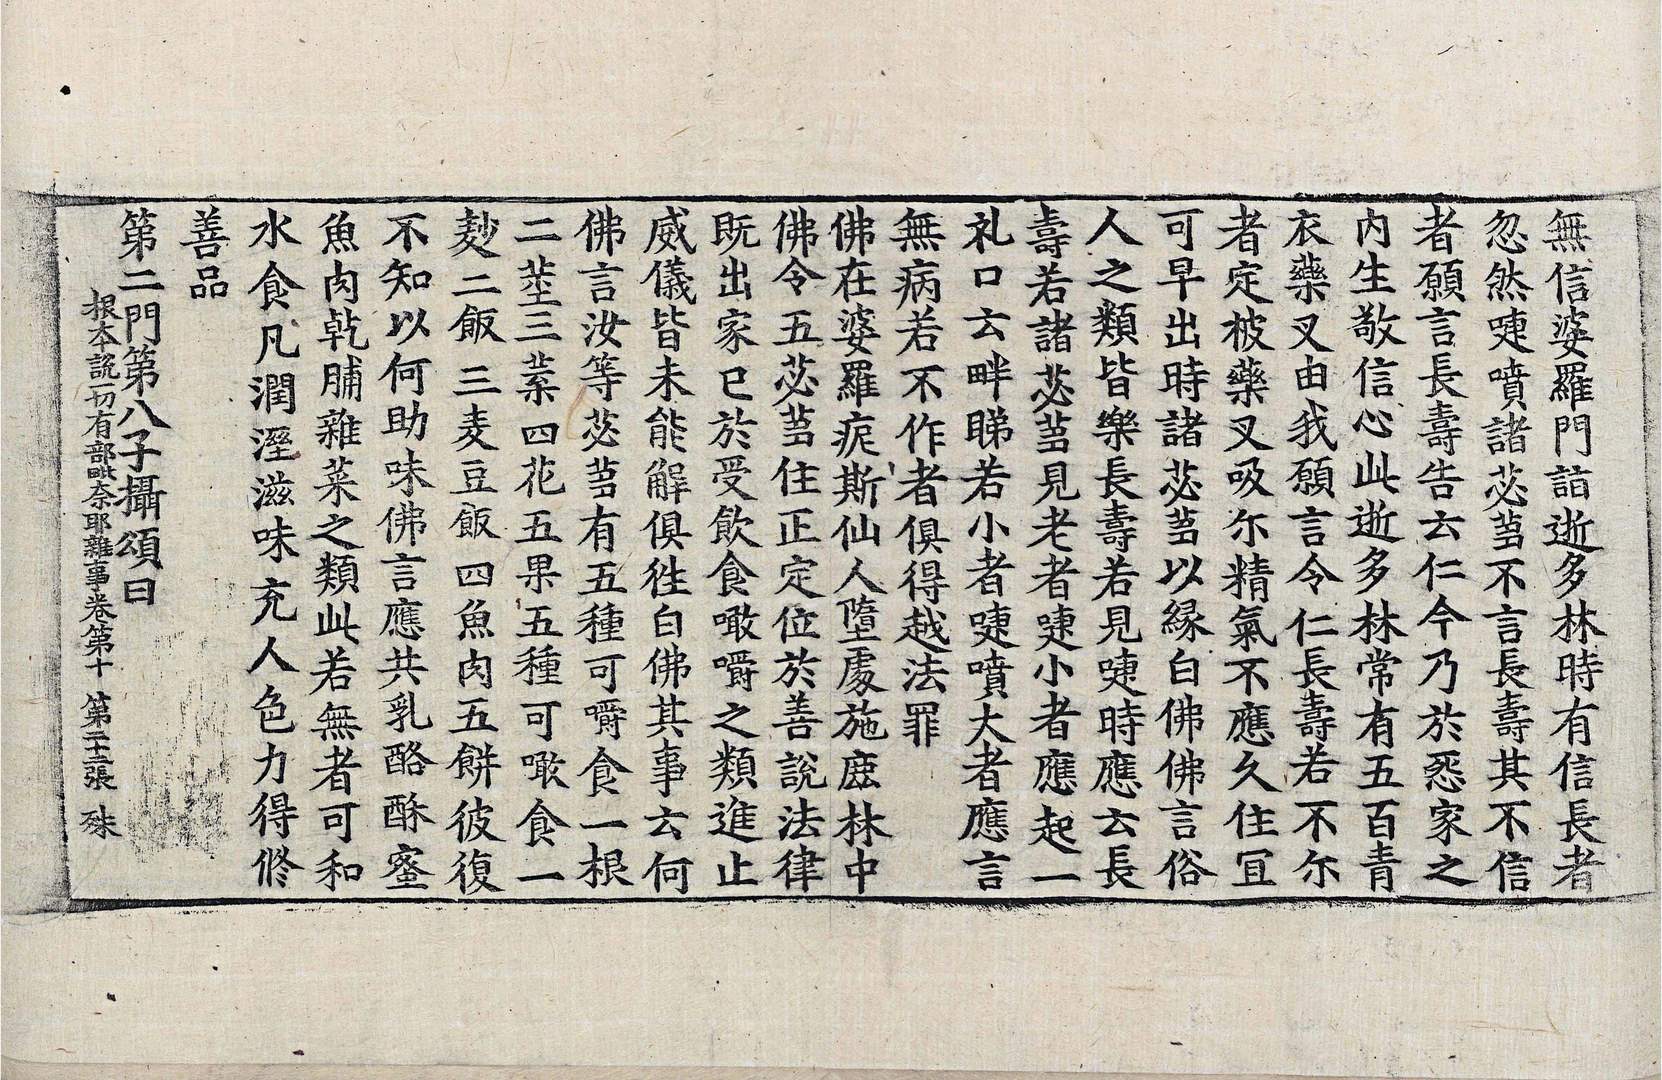 無信婆羅門詣逝多林時有信長者
忽然啑噴諸苾芻不言長壽其不信
者願言長壽告云仁今乃於惡家之
内生敬信心此逝多林常有五百青
衣藥叉由我願言令仁長壽若不尓
者定被藥叉吸尔精氣不應久住冝
可早出時諸苾芻以縁白佛佛言俗
人之類皆樂長壽若見啑時應云長
壽若諸苾芻見老者啑小者應起一
礼口云畔睇若小者啑噴大者應言
無病若不作者俱得越法罪
佛在婆羅痆斯仙人墮處施鹿林中
佛令五苾芻住正定位於善說法律
既出家已於受飲食噉嚼之類進止
威儀皆未能解俱徃白佛其事云何
佛言汝等苾芻有五種可嚼食一根
二莖三葉四花五果五種可噉食一
麨二飯三麦豆飯四魚肉五餅彼復
不知以何助味佛言應共乳酪酥蜜
魚肉乾脯雜菜之類此若無者可和
水食凡潤溼滋味充人色力得修
善品
第二門第八子攝頌曰
根本說一切有部毗奈耶雜事卷第十 第二十三張 殊